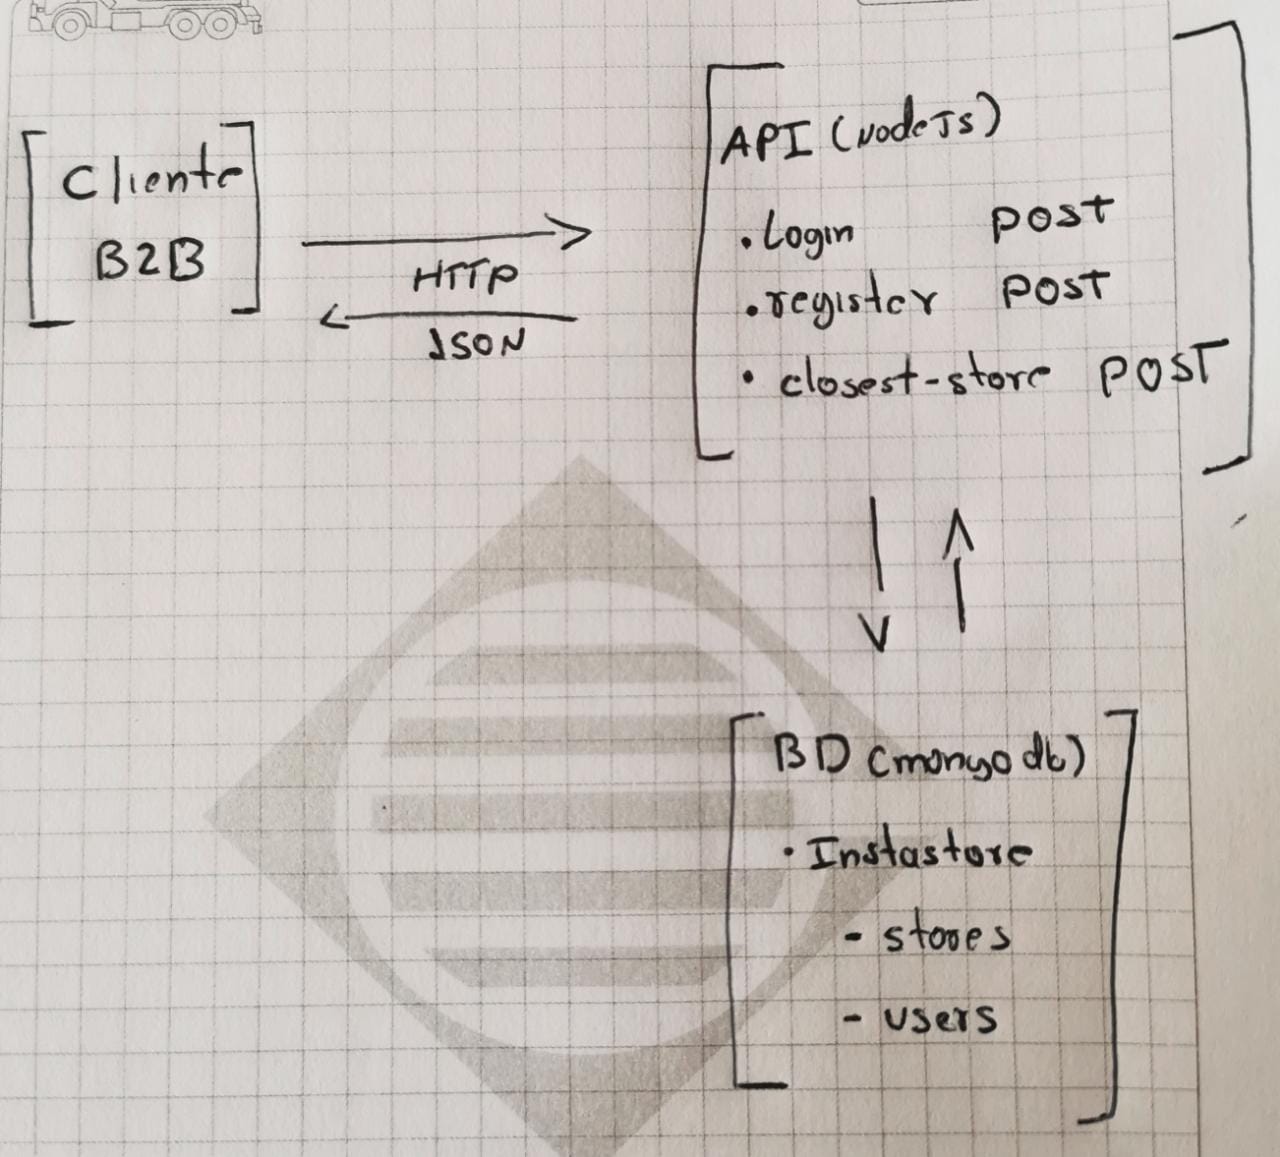 Cliente
B2B
HTTP
JSON
API (NodeJs)
. Login POST
. register POST
. closest-store POST
BD (mongodb)
. Instastore
- stores
- users